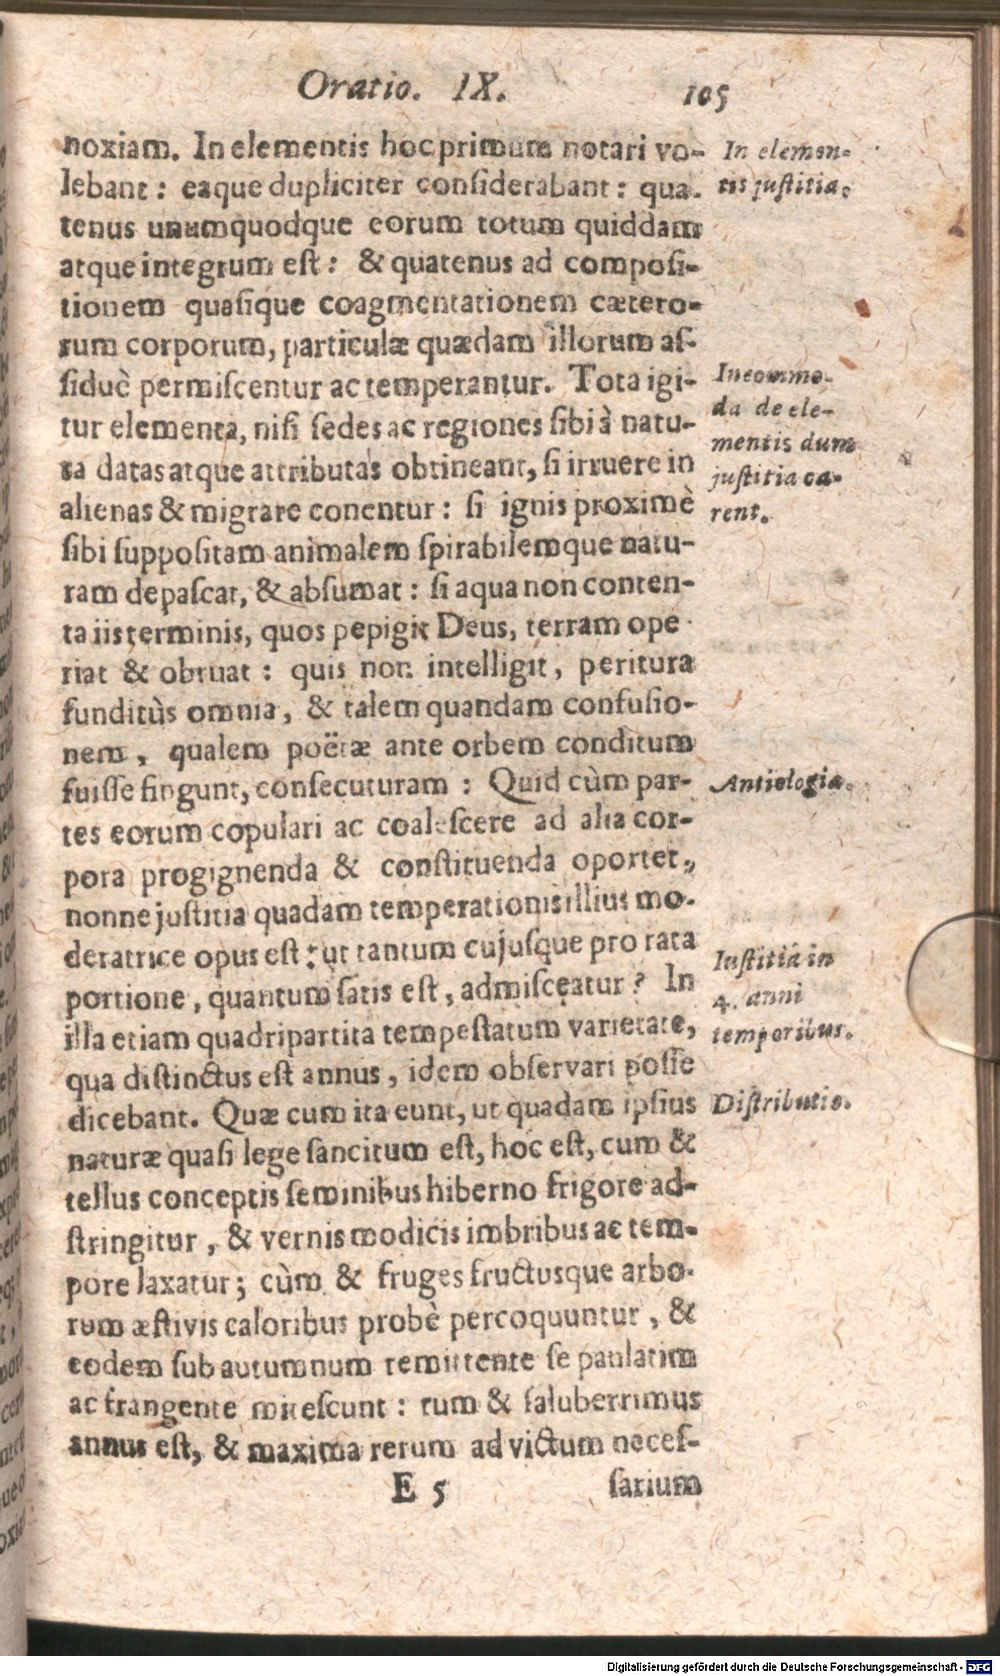 Oratio. IX. 105
noxiam. In elementis hoc primum notari vo-
lebant: eaque dupliciter considerabant: qua-
tenus unumquodque eorum totum quiddam
atque integrum est: & quatenus ad composi-
tionem quasique coagmentationem cætero-
rum corporum, particulæ quædam illorum as-
siduè permiscentur ac temperantur. Tota igi-
tur elementa, nisi sedes ac regiones sibi à natu-
ra datas atque attributas obtineant, si irruere in
alienas & migrare conentur: si ignis proximè
sibi suppositam animalem spirabilemque natu-
ram depascat, & absumat: si aqua non conten-
ta iis terminis, quos pepigit Deus, terram ope-
riat & obruat: quis non intelligit, peritura
funditùs omnia, & talem quandam confusio-
nem, qualem poëtæ ante orbem conditum
fuisse fingunt, consecuturam: Quid cùm par-
tes eorum copulari ac coalescere ad alia cor-
pora progignenda & constituenda oportet,
nonne justitia quadam temperationis illius mo-
deratrice opus est: ut tantum cujusque pro rata
portione, quantum satis est, admisceatur? In
illa etiam quadripartita tempestatum varietate,
qua distinctus est annus, idem observari posse
dicebant. Quæ cum ita eunt, ut quadam ipsius
naturæ quasi lege sancitum est, hoc est, cum &
tellus conceptis seminibus hiberno frigore ad-
stringitur, & vernis modicis imbribus ac tem-
pore laxatur; cùm & fruges fructusque arbo-
rum æstivis caloribus probè percoquuntur, &
eodem sub autumnum remittente se paulatim
ac frangente mitescunt: tum & saluberrimus
annus est, & maxima rerum ad victum neces-
E 5 sarium
In elemen-
tis justitia.
Incommo-
da de ele-
mentis dum
justitia ca-
rent.
Antiologia.
Iustitia in
4. anni
temporibus.
Distributio.
Digitalisierung gefördert durch die Deutsche Forschungsgemeinschaft - DFG